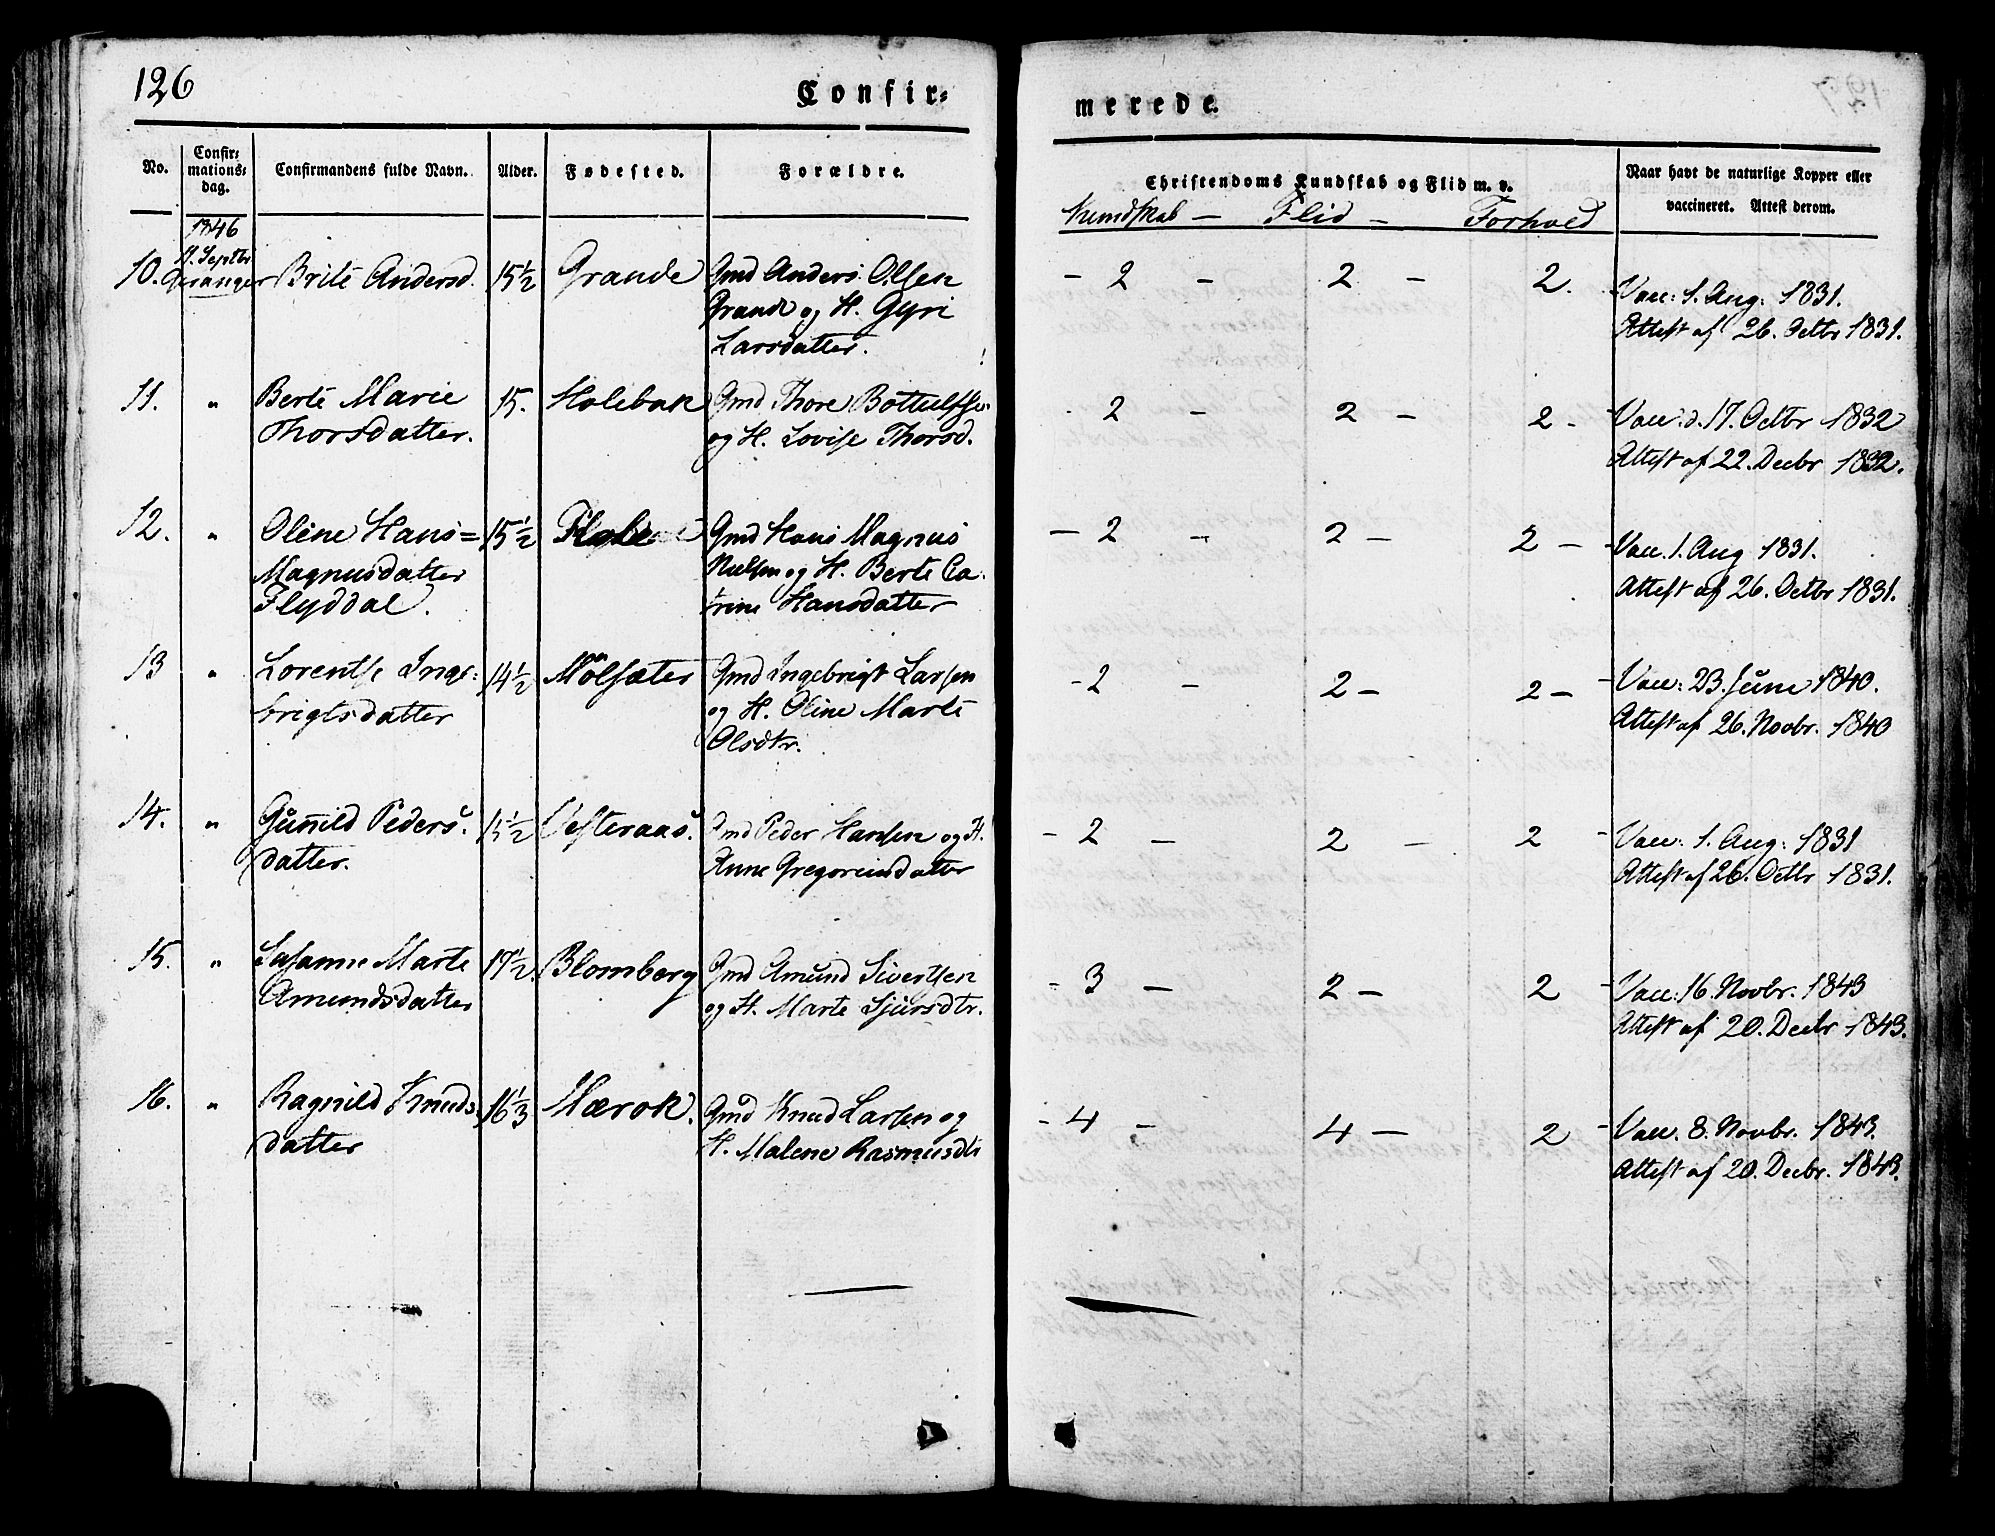 126
Confir=
merede.
No.
Confir=
mations=
dag.
Confirmandens fulde Navn.
Alder.
Fødested.
Forældre.
Christendoms Kundskab og Flid m. v.
Kundskab — Flid — Forhold
Naar havt de naturlige Kopper eller
vaccineret. Attest derom.
1846
Septbr
Geranger
10. Brite Andersd. 15½ Grande Gmd Anders Olsen
Grande og H. Gyri
Larsdatter.
- 2 - 2 - 2. Vacc: 1. Aug: 1831.
Attest af 26. Octbr 1831.
11. " Berte Marie 15. Holebak Gmd Thore Bottulfse
Thorsdatter. og H. Lovise Thorsd.
- 2 - 2 - 2 - Vacc. d. 17. Octbr 1832
Attest af 22. Decbr 1832.
12. " Oline Hans= 15½ Gmd Hans Magnus
Magnusdatter Nielsen og H. Berte Ca
Flyddal. trine Hansdatter
- 2 - 2 - 2 - Vacc. 1. Aug 1831.
Attest af 26. Octbr 1831.
13 " Lorentse Inge= 14½ Mölsæter Gmd Ingebrigt Larsen
brigtsdatter og H. Oline Marte
Olsdtr.
- 2 - 2 - 2 - Vacc: 23. Juni 1840.
Attest af 26. Novbr. 1840
14. " Gunild Peders. 15½ Vesteraas. Gmd Peder Hansen og H.
datter. Anne Gregoriusdatter
- 2 - 2 - 2 - Vacc: 1. Aug: 1831
Attest af 26. Octbr 1831.
15. " Susanne Marte 17½ Blomberg Gmd Amund Sivertsen
Amundsdatter og H. Marte Sjursdtr.
- 3 - 2 - 2 - Vacc: 16. Novbr. 1843
Attest af 20. Decbr 1843.
16. " Ragnild Knuds. 16⅓ Mærok. Gmd Knud Larsen og
datter H. Malene Rasmusdtr
- 4 - 4 - 2 - Vacc. 8. Novbr. 1843.
Attest af 20. Decbr. 1843.